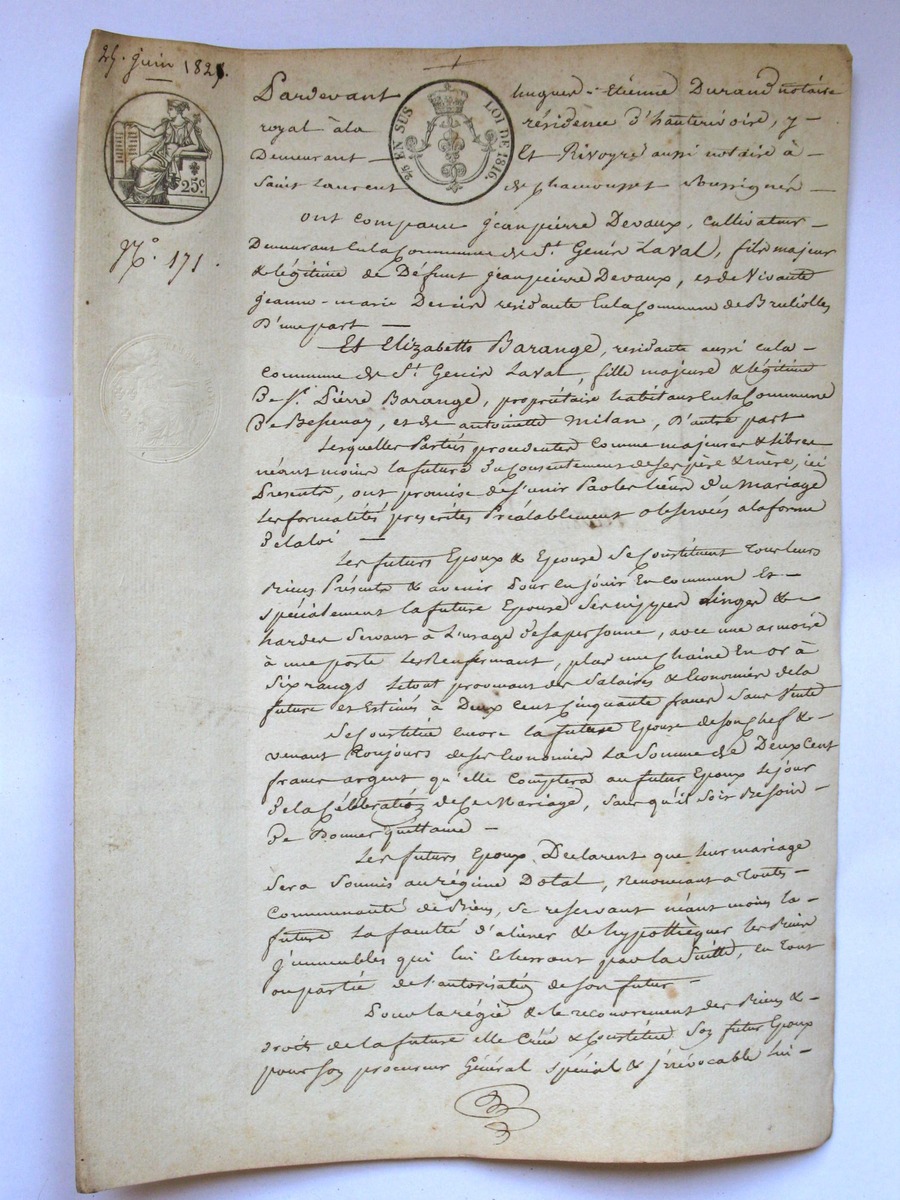 25. juin 182
Pardevant hugues-Etienne Durand notaire
royal à la résidence d'hauterivoire, y
Demeurant Et Rivoyre aussi notaire à
Saint Laurent de Chamousset soussignés
2/5 EN SUS LOI DE 1816.
25c.
No. 171.
ont comparu jean pierre Devaux, cultivateur
Demeurant en la Commune de St. Genis Laval, fils majeur
& légitime de Défunt jean pierre Devaux, et de vivante
jeanne-marie résidante en la Commune de Brullioles
D'une part
Et Elizabeth Barange, résidante aussi en la
commune de St. Genis Laval, fille majeure & légitime
De Sr. Pierre Barange, propriétaire habitant en la Commune
De Bessenay, et de antoinette Milan, D'autre part
Lesquelles Parties procedantes comme majeures & libres
néant moins la future du Consentement de ses père & mère, ici
Présents, ont promis de s'unir Par les liens du Mariage
les formalités prescrites Préalablement observées a la forme
de la loi
Les futurs Epoux & Epouse Se Constituent Tous leurs
Biens Présents & avenir Pour en jouir En commun Et
spécialement la future Epouse Ses nippes Linges &
hardes Servant à L'usage de sa personne, avec une armoire
à une porte Les Renfermant, plus une Chaine En or à
Six rangs Le tout provenant des Salaires & Economies de la
future et Estimés à Deux Cent Cinquante francs Sans Vente
Se Constitue encore la future Epouse de son Chef &
venant Toujours de ses Economies La Somme de Deux cent
francs argent qu'elle Comptera au futur Epoux le jour
de la Célébration de Ce Mariage, Sans qu'il Soit Besoin
De Donner quittance
Les futurs Epoux Déclarent que leur mariage
Sera Soumis au régime Dotal, Renoncant a Toutes
Communauté de Biens, Se reservant néant moins la
future La faculté d'aliéner & de hypothèquer les Biens
d'immeubles qui lui Echerront par la Suitte, En Tout
ou partie de l'autorisation de son futur
Pour la régie & le recouvrement des Biens &
droits de la future elle Crée & Constitue Son futur Epoux
pour Son procureur Général spécial & irrévocable lui